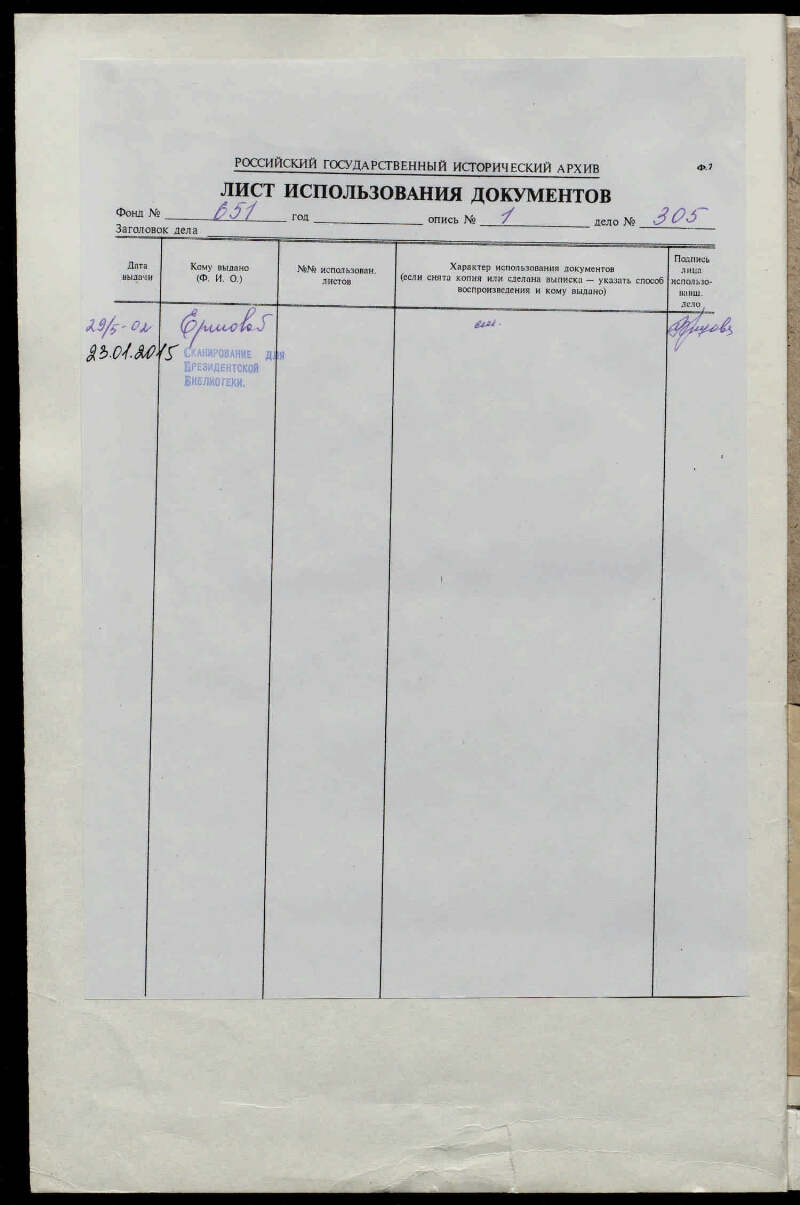 РОССИЙСКИЙ ГОСУДАРСТВЕННЫЙ ИСТОРИЧЕСКИЙ АРХИВ
Ф.7
ЛИСТ ИСПОЛЬЗОВАНИЯ ДОКУМЕНТОВ
Фонд № 651 год опись № 1 дело № 305
Заголовок дела
Дата
выдачи
Кому выдано
(Ф. И. О.)
№№ использован.
листов
Характер использования документов
(если снята копия или сделана выписка — указать способ
воспроизведения и кому выдано)
Подпись
лица
использо-
вавш.
дело
29/5-02
23.01.2015
СКАНИРОВАНИЕ ДЛЯ
ПРЕЗИДЕНТСКОЙ
БИБЛИОТЕКИ.